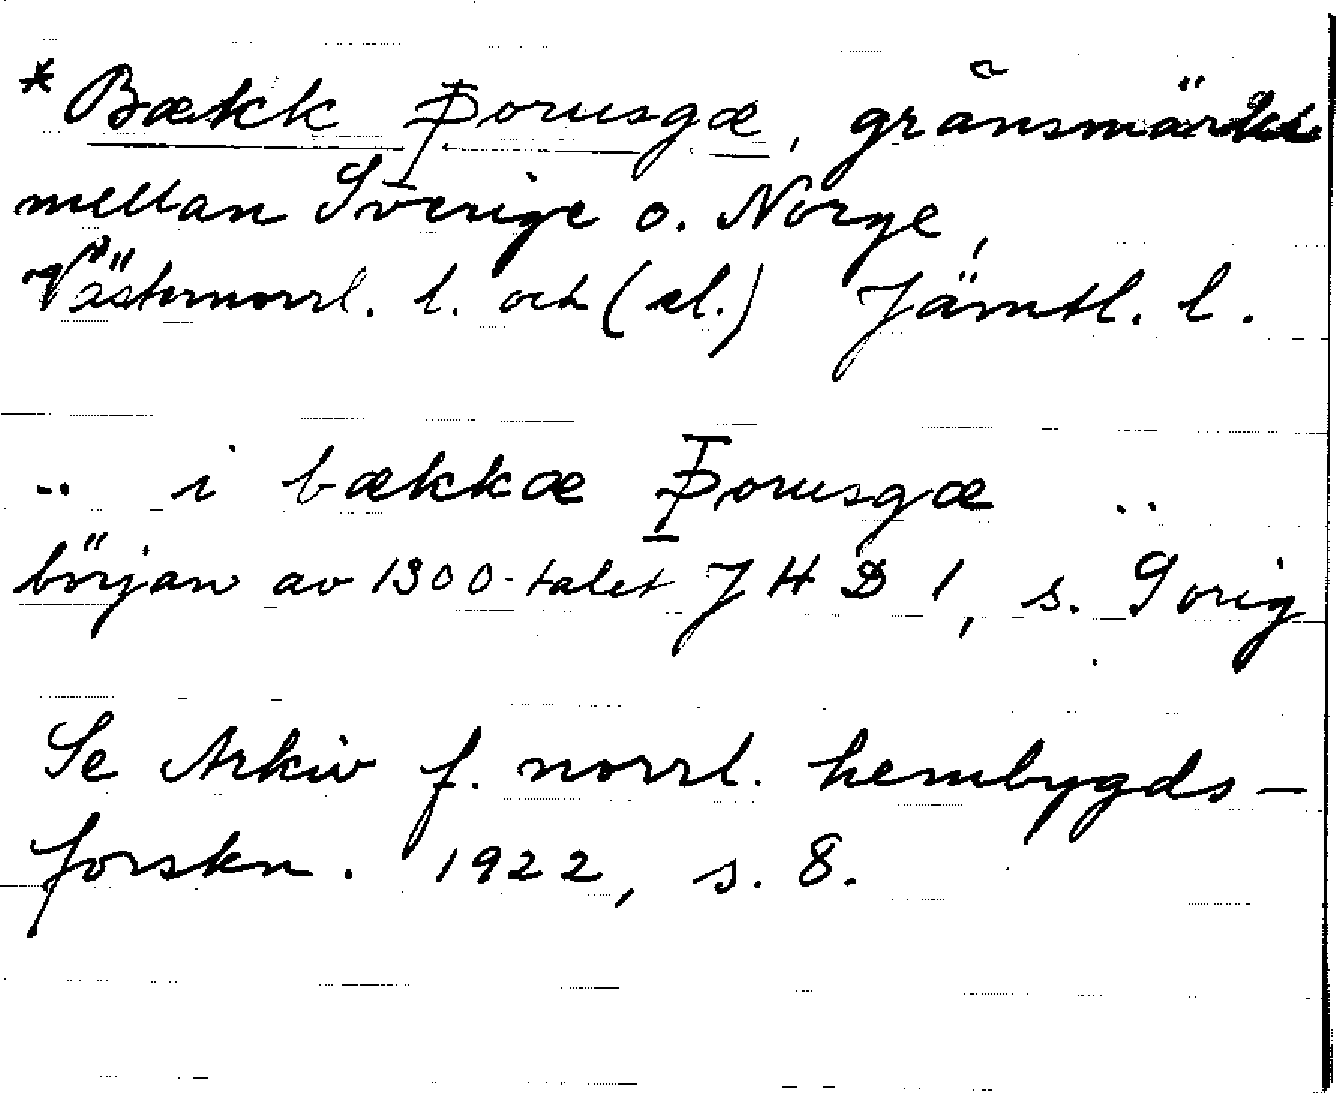 *Bækk Þorusgæ, gränsmärke
mellan Sverige o. Norge,
Västernorrl. l. och (el.) Jämtl. l.
.. i bækkæ Þorusgæ ..
början av 1300-talet JHD 1, s. 9 orig.
Se Arkiv f. norrl. hembygds-
forskn. 1922, s. 8.